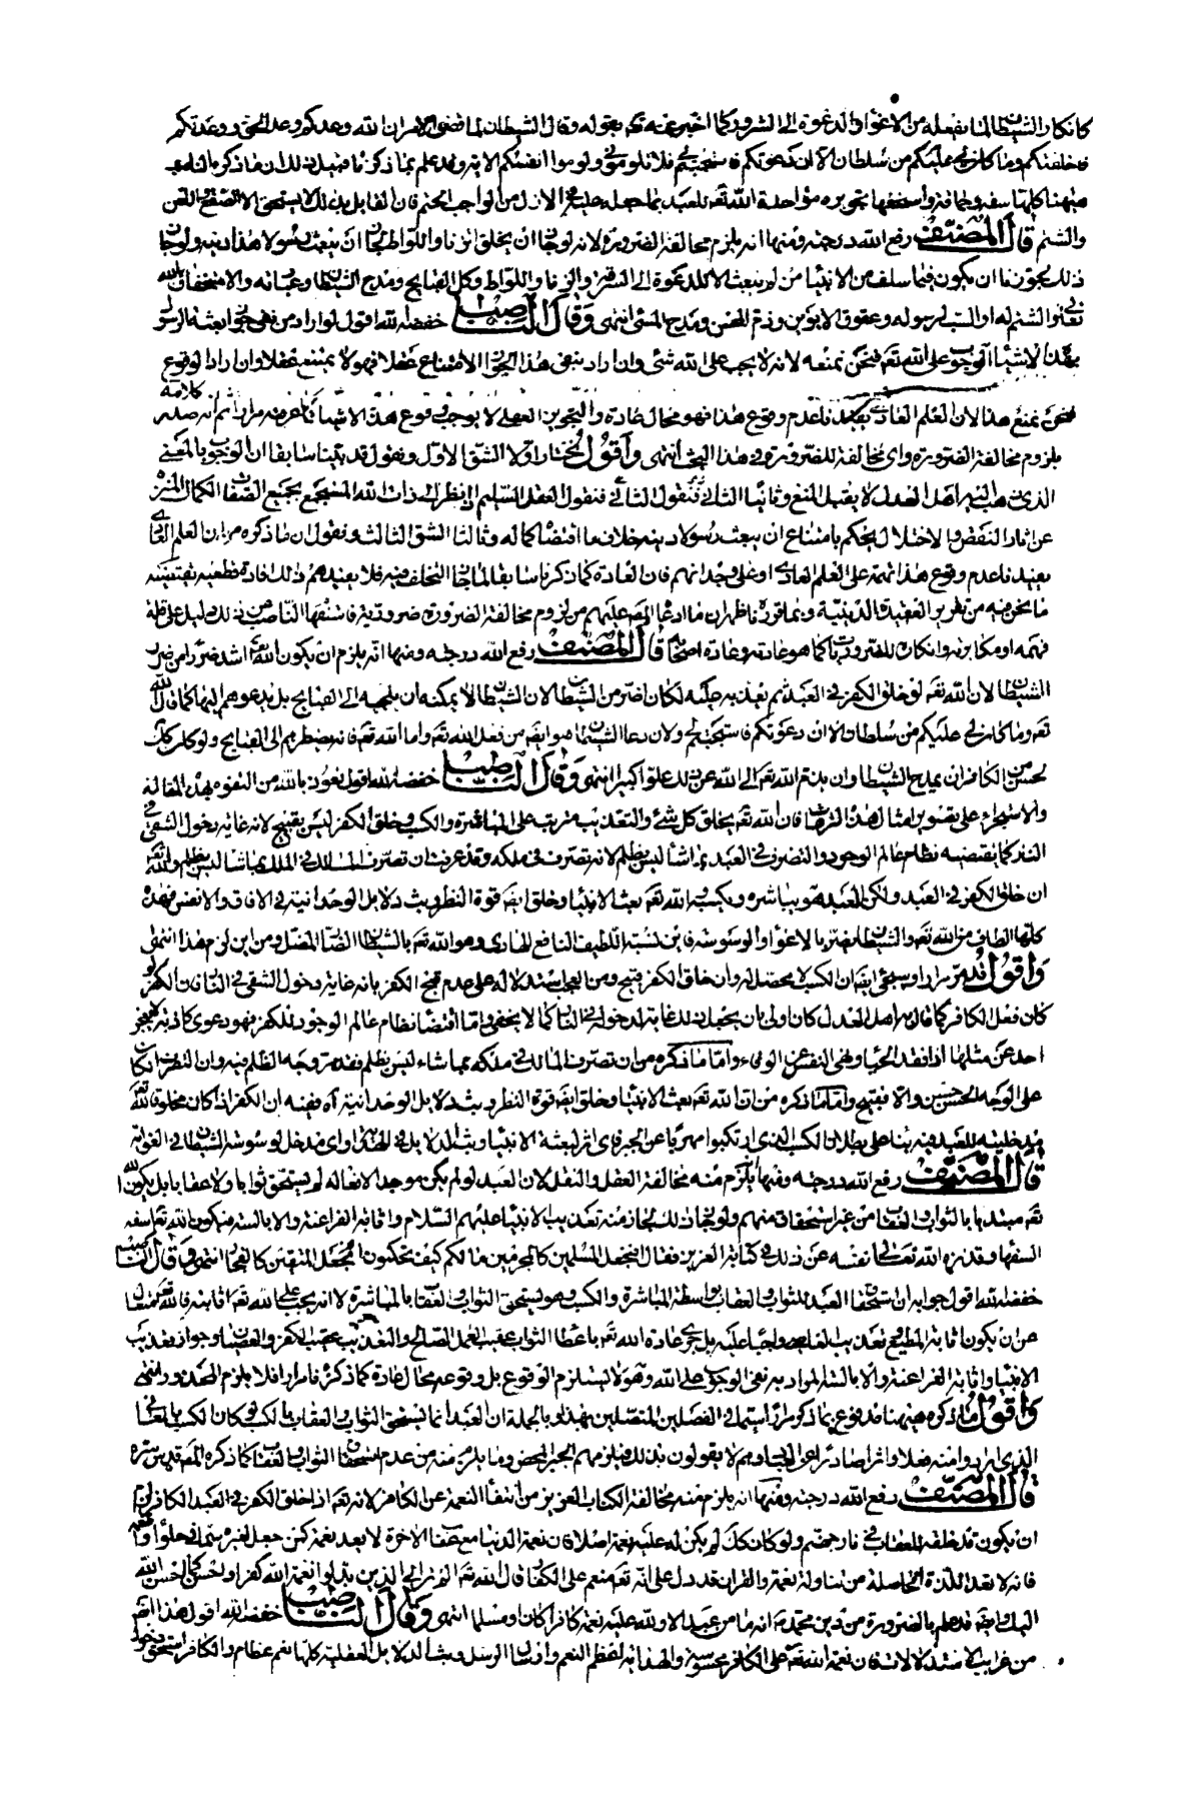 كانكار الشيطان لما يفعله من الاغواء والدعوة الى الشرور كما اخبر عنه تع بقوله وقال الشيطان لما قضى الامر ان الله وعدكم وعد الحق ووعدتكم
فاخلفتكم وما كان لي عليكم من سلطان الا ان دعوتكم فاستجبتم لي فلا تلوموني ولوموا انفسكم
مؤاخذة الله تع للعبد بما جعله عليه في الازل من الواجب المحتم فان القايل بذلك لا يستحق الا الصفع واللعن
والشتم قال المصنف رفع الله درجته ومنها انه يلزم مخالفة الضرورة لانه لو جاز ان يخلق الزنا واللواط لجاز ان يبعث رسولا هذا دينه ولو جاز
ذلك لجوزنا ان يكون فيما سلف من الانبياء من لم يبعث الا للدعوة الى السرقة والزنا واللواط وكل القبايح ومدح الشيطان وعبادته والاستخفاف بالله
تعالى والشتم له والسب لرسوله وعقوق الابوين وذم المحسن ومدح المسئ انتهى وقال الناصب خفضه الله اقول لو اراد من نفي جواز بعثة الرسول
بهذه الاشياء الوجوب على الله تع فنحن نمنعه لانه لا يجب على الله شئ وان اراد بنفي هذا الجواز الامتناع عقلا فهو لا يمتنع عقلا وان اراد الوقوع
فنحن نمنع هذا لان العلم العادي يفيدنا عدم وقوع هذا فهو محال عادة والتجويز العقلي لا يوجب وقوع هذه الاشياء كما عرفته مرارا ثم انه صدر كلامه
بلزوم مخالفة الضرورة واي مخالفة للضرورة في هذا البحث انتهى واقول نختار اولا الشق الاول ونقول قد بينا سابقا ان الوجوب بالمعنى
الذي ذهب اليه اهل العدل لا يقبل المنع وثانيا الثاني فنقول العقل السليم اذا نظر الى ذات الله المستجمع بجميع الصفات الكمال المنزه
عن اثار النقص والاختلال يحكم بامتناع ان يبعث رسولا دينه خلاف ما اقتضاه كماله وثالثا الشق الثالث ونقول ان ما ذكره من ان العلم العادي
يفيدنا عدم وقوع هذا انما يتم على العلم العادي
ما نحن فيه من
فهمه او مكابرته وانكاره للضروريات كما هو عادته وعادة اصحابه قال المصنف رفع الله درجته ومنها انه يلزم ان يكون الله تع اشد ضررا من ضرر
الشيطان لان الله تع لو خلق الكفر في العبد ثم يعذبه عليه لكان اضر من الشيطان لان الشيطان لا يمكنه ان يلجئه الى القبايح بل يدعوهم اليها كما قال الله
تع وما كان لي عليكم من سلطان الا ان دعوتكم فاستجبتم لي ولان دعاء الشيطان هو ايضا من فعل الله تع واما الله تع فانه يضطرهم الى القبايح ولو كان كذلك
لحسن من الكافر ان يمدح الشيطان وان يذم الله تع تعالى الله عن ذلك علوا كبيرا انتهى وقال الناصب خفضه الله اقول نعوذ بالله من التفوه بهذه المقالة
والاستجراء على تصوير امثال هذه الترهات فان الله تع يخلق كل شئ والتعذيب مرتب على المباشرة والكسب وخلق الكفر ليس بقبيح لانه غايته دخول الشقي في
النار كما يقتضيه نظام عالم الوجود والتصرف في العبد بما شاء ليس بظلم لانه تصرف في ملكه وقد عرفت ان تصرف المالك في الملك بما شاء ليس بظلم والله تع
ان خلق الكفر في العبد ولكن العبد هو يباشره ويكسبه والله تع بعث الانبياء وخلق ايضا قوة النظر وبث دلايل الوحدانية في الافاق والانفس فهذه
كلها الطاف من الله تع والشيطان يضر بالاغواء والوسوسة فاين نسبة اللطيف النافع الهادي وهو الله تع بالشيطان الضار المضل ومن اين لزم هذا انتهى
واقول قد مر مرارا وسيجئ ايضا ان الكسب لا محصل له وان خلق الكفر قبيح ومن العجايب استدلاله على عدم قبح الكفر بانه غايته دخول الشقي في النار فان الكفر لو
كان فعل الكافر كما قال به اهل العدل كان اولى بان يجعل ذلك غاية لدخوله في النار كما لا يخفى واما اقتضاء نظام عالم الوجود للكفر فهو دعوى كاذبة لا يعجز
احد عن مثلها اذا فقد الحياء ونهى النفس عن الوفاء واما ما ذكره من ان تصرف المالك في ملكه بما شاء ليس بظلم فقد مر وجه الظلم فيه وان التصرف ان كان
على الوجه الحسن حسن والا فقبيح واما ما ذكره من ان الله تع بعث الانبياء وخلق ايضا قوة النظر وبث دلايل الوحدانية آه ففيه ان الكفر اذا كان مخلوقا لله تع
بناء على بطلان الكسب الذي ارتكبوا مهربا عن الجبر فاي اثر لبعثة الانبياء وبث الدلايل في الهداية واي مدخل لوسوسة الشيطان في الغواية
قال المصنف رفع الله درجته ومنها يلزم منه مخالفة العقل والنقل لان العبد لو لم يكن موجدا لافعاله لم يستحق ثوابا ولا عقابا بل يكون الله
تع مبتدئا بالثواب والعقاب من غير استحقاق منهم ولو جاز ذلك لجاز منه تعذيب الانبياء عليهم السلام واثابة الفراعنة والابالسة فيكون الله تع اسفه
السفهاء وقد نزه الله تعالى نفسه عن ذلك في كتابه العزيز فقال افنجعل المسلمين كالمجرمين ما لكم كيف تحكمون ام نجعل المتقين كالفجار انتهى وقال الناصب
خفضه الله اقول جوابه ان استحقاق العبد للثواب والعقاب بواسطة المباشرة والكسب وهو يستحق الثواب والعقاب بالمباشرة لا انه يجب على الله تع اثابته فالله تع متعال
عن ان يكون اثابة المطيع وتعذيب العاصي واجبا عليه بل جرى عادة الله تع باعطاء الثواب عقيب العمل الصالح والتعذيب عقيب الكفر والعصيان وجواز تعذيب
الانبياء واثابة الفراعنة والابالسة المراد به نفي الوجوب على الله وهو لا يستلزم الوقوع بل وقوعه محال عادة كما ذكرنا مرارا فلا يلزم المحذور انتهى
واقول ما ذكره هيهنا مدفوع بما ذكر مرارا سيما في الفصلين المتصلين بهذا وبالجملة ان العبد انما يستحق الثواب والعقاب بالكسب لو كان الكسب بالمعنى
الذي اريد منه فعلا واثرا صادرا عن العبد وهم لا يقولون بذلك فيلزمهم الجبر المحض وما يلزمه منه من عدم استحقاق الثواب والعقاب كما ذكره المصنف قدس سره
قال المصنف رفع الله درجته ومنها انه يلزم منه مخالفة الكتاب العزيز من انتفاء النعمة عن الكافر لانه تع اذا خلق الكفر في العبد الكافر لزم
ان يكون قد خلقه للعقاب في نار جهنم ولو كان كذلك لم يكن له عليه نعمة اصلا فان نعمة الدنيا مع عقاب الاخرة لا يعد نعمة كمن جعل لغيره سما في حلواء واطعمه
فانه لا تعد اللذة الحاصلة من تناوله نعمة والقران قد دل على انه تع منعم على الكفار قال الله تع الم تر الى الذين بدلوا نعمة الله كفرا واحسن كما احسن الله
اليك وايضا قد علم بالضرورة من دين محمد ص انه ما من عبد الا ولله عليه نعمة كافرا كان او مسلما انتهى وقال الناصب خفضه الله اقول هذا ايضا
من غرايب الاستدلالات فان نعمة الله تع على الكافر محسوسة والهداية اعظم النعم وارسال الرسل وبث الدلايل العقلية كلها نعم عظام والكافر استحق دخول